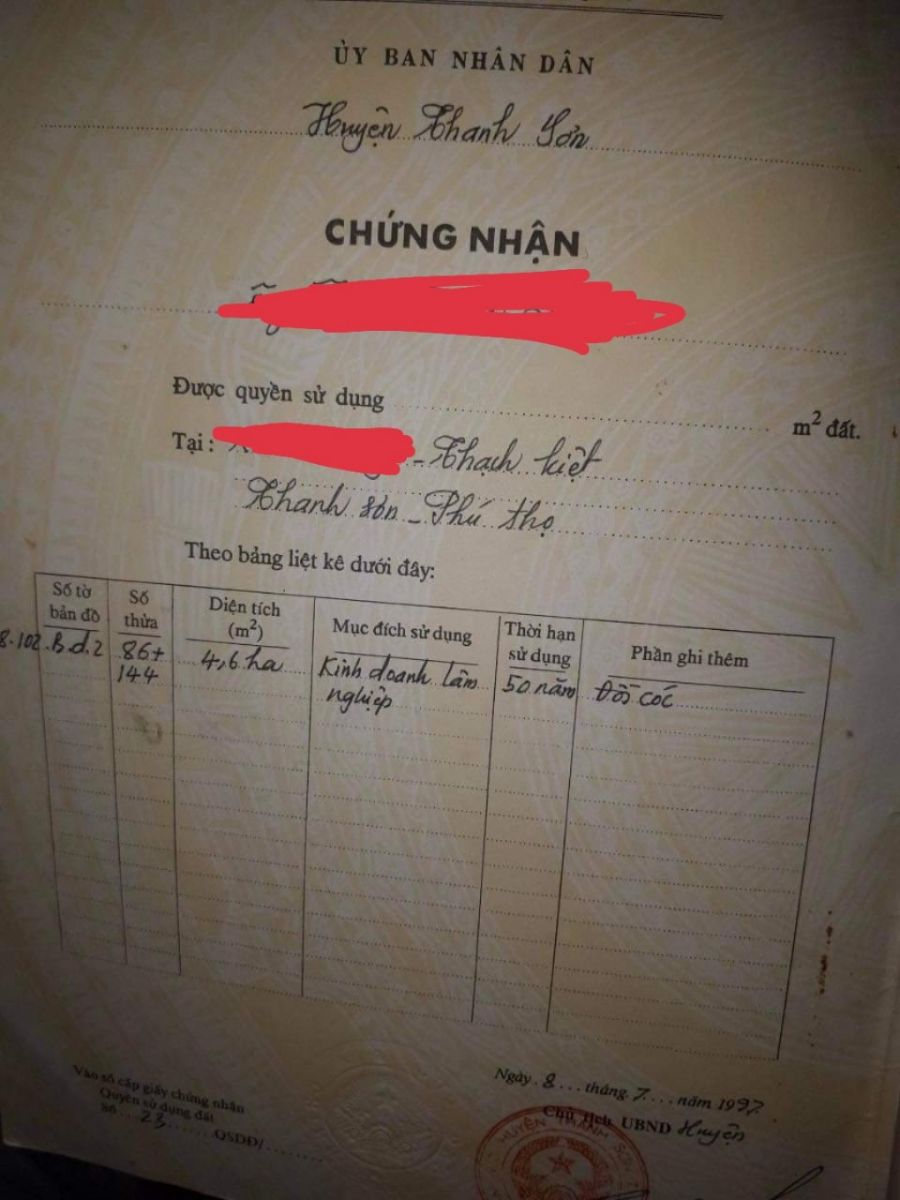 ỦY BAN NHÂN DÂN
Huyện Thanh Sơn
CHỨNG NHẬN
Được quyền sử dụng m² đất.
Tại: Thạch kiệt
Thanh sơn - Phú thọ
Theo bảng liệt kê dưới đây:
Số tờ bản đồ Số thửa Diện tích (m²) Mục đích sử dụng Thời hạn sử dụng Phần ghi thêm
8.102 B.d.2 86+ 144 4,6 ha Kinh doanh lâm nghiệp 50 năm Đồi cóc
Ngày 8 tháng 7 năm 1997
Chủ tịch UBND Huyện
Vào sổ cấp giấy chứng nhận
Quyền sử dụng đất
Số 23 QSDĐ/
HUYỆN THANH SƠN